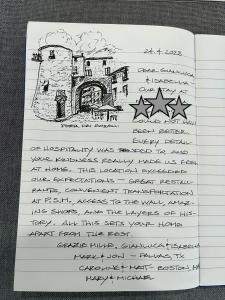 24.4.2022
DEAR GIANLUCA
& ISABELLA
OUR STAY AT
COULD NOT HAVE
BEEN BETTER
EVERY DETAIL
PORTA DEI BORGHI
OF HOSPITALITY WAS TENDED TO AND
YOUR KINDNESS REALLY MADE US FEEL
AT HOME. THE LOCATION EXCEEDED
OUR EXPECTATIONS – GREAT RESTAU-
RANTS, CONVENIENT TRANSPORTATION
AT P.S.M., ACCESS TO THE WALL, AMAZ-
ING SHOPS, AND THE LAYERS OF HIS-
TORY. ALL THIS SETS YOUR HOME
APART FROM THE REST.
GRAZIE MILLE, GIANLUCA & ISABELLA
MARK & JON – DALLAS, TX
CAROLINE & MATT – BOSTON, MA
MARY & MICHAEL